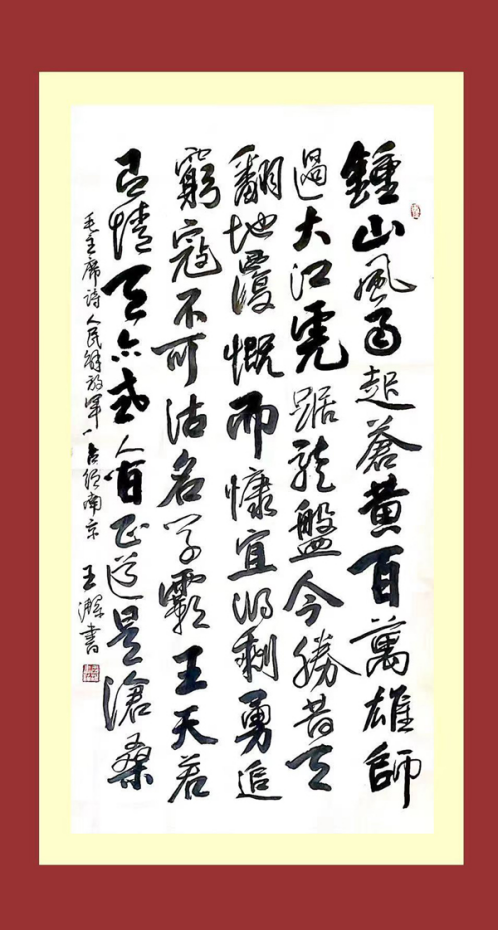 鍾山風雨起蒼黄百萬雄師
過大江虎踞龍盤今勝昔天
翻地覆慨而慷宜將剩勇追
窮寇不可沽名学霸王天若
有情天亦老人間正道是滄桑
毛主席诗人民解放軍占領南京 王書